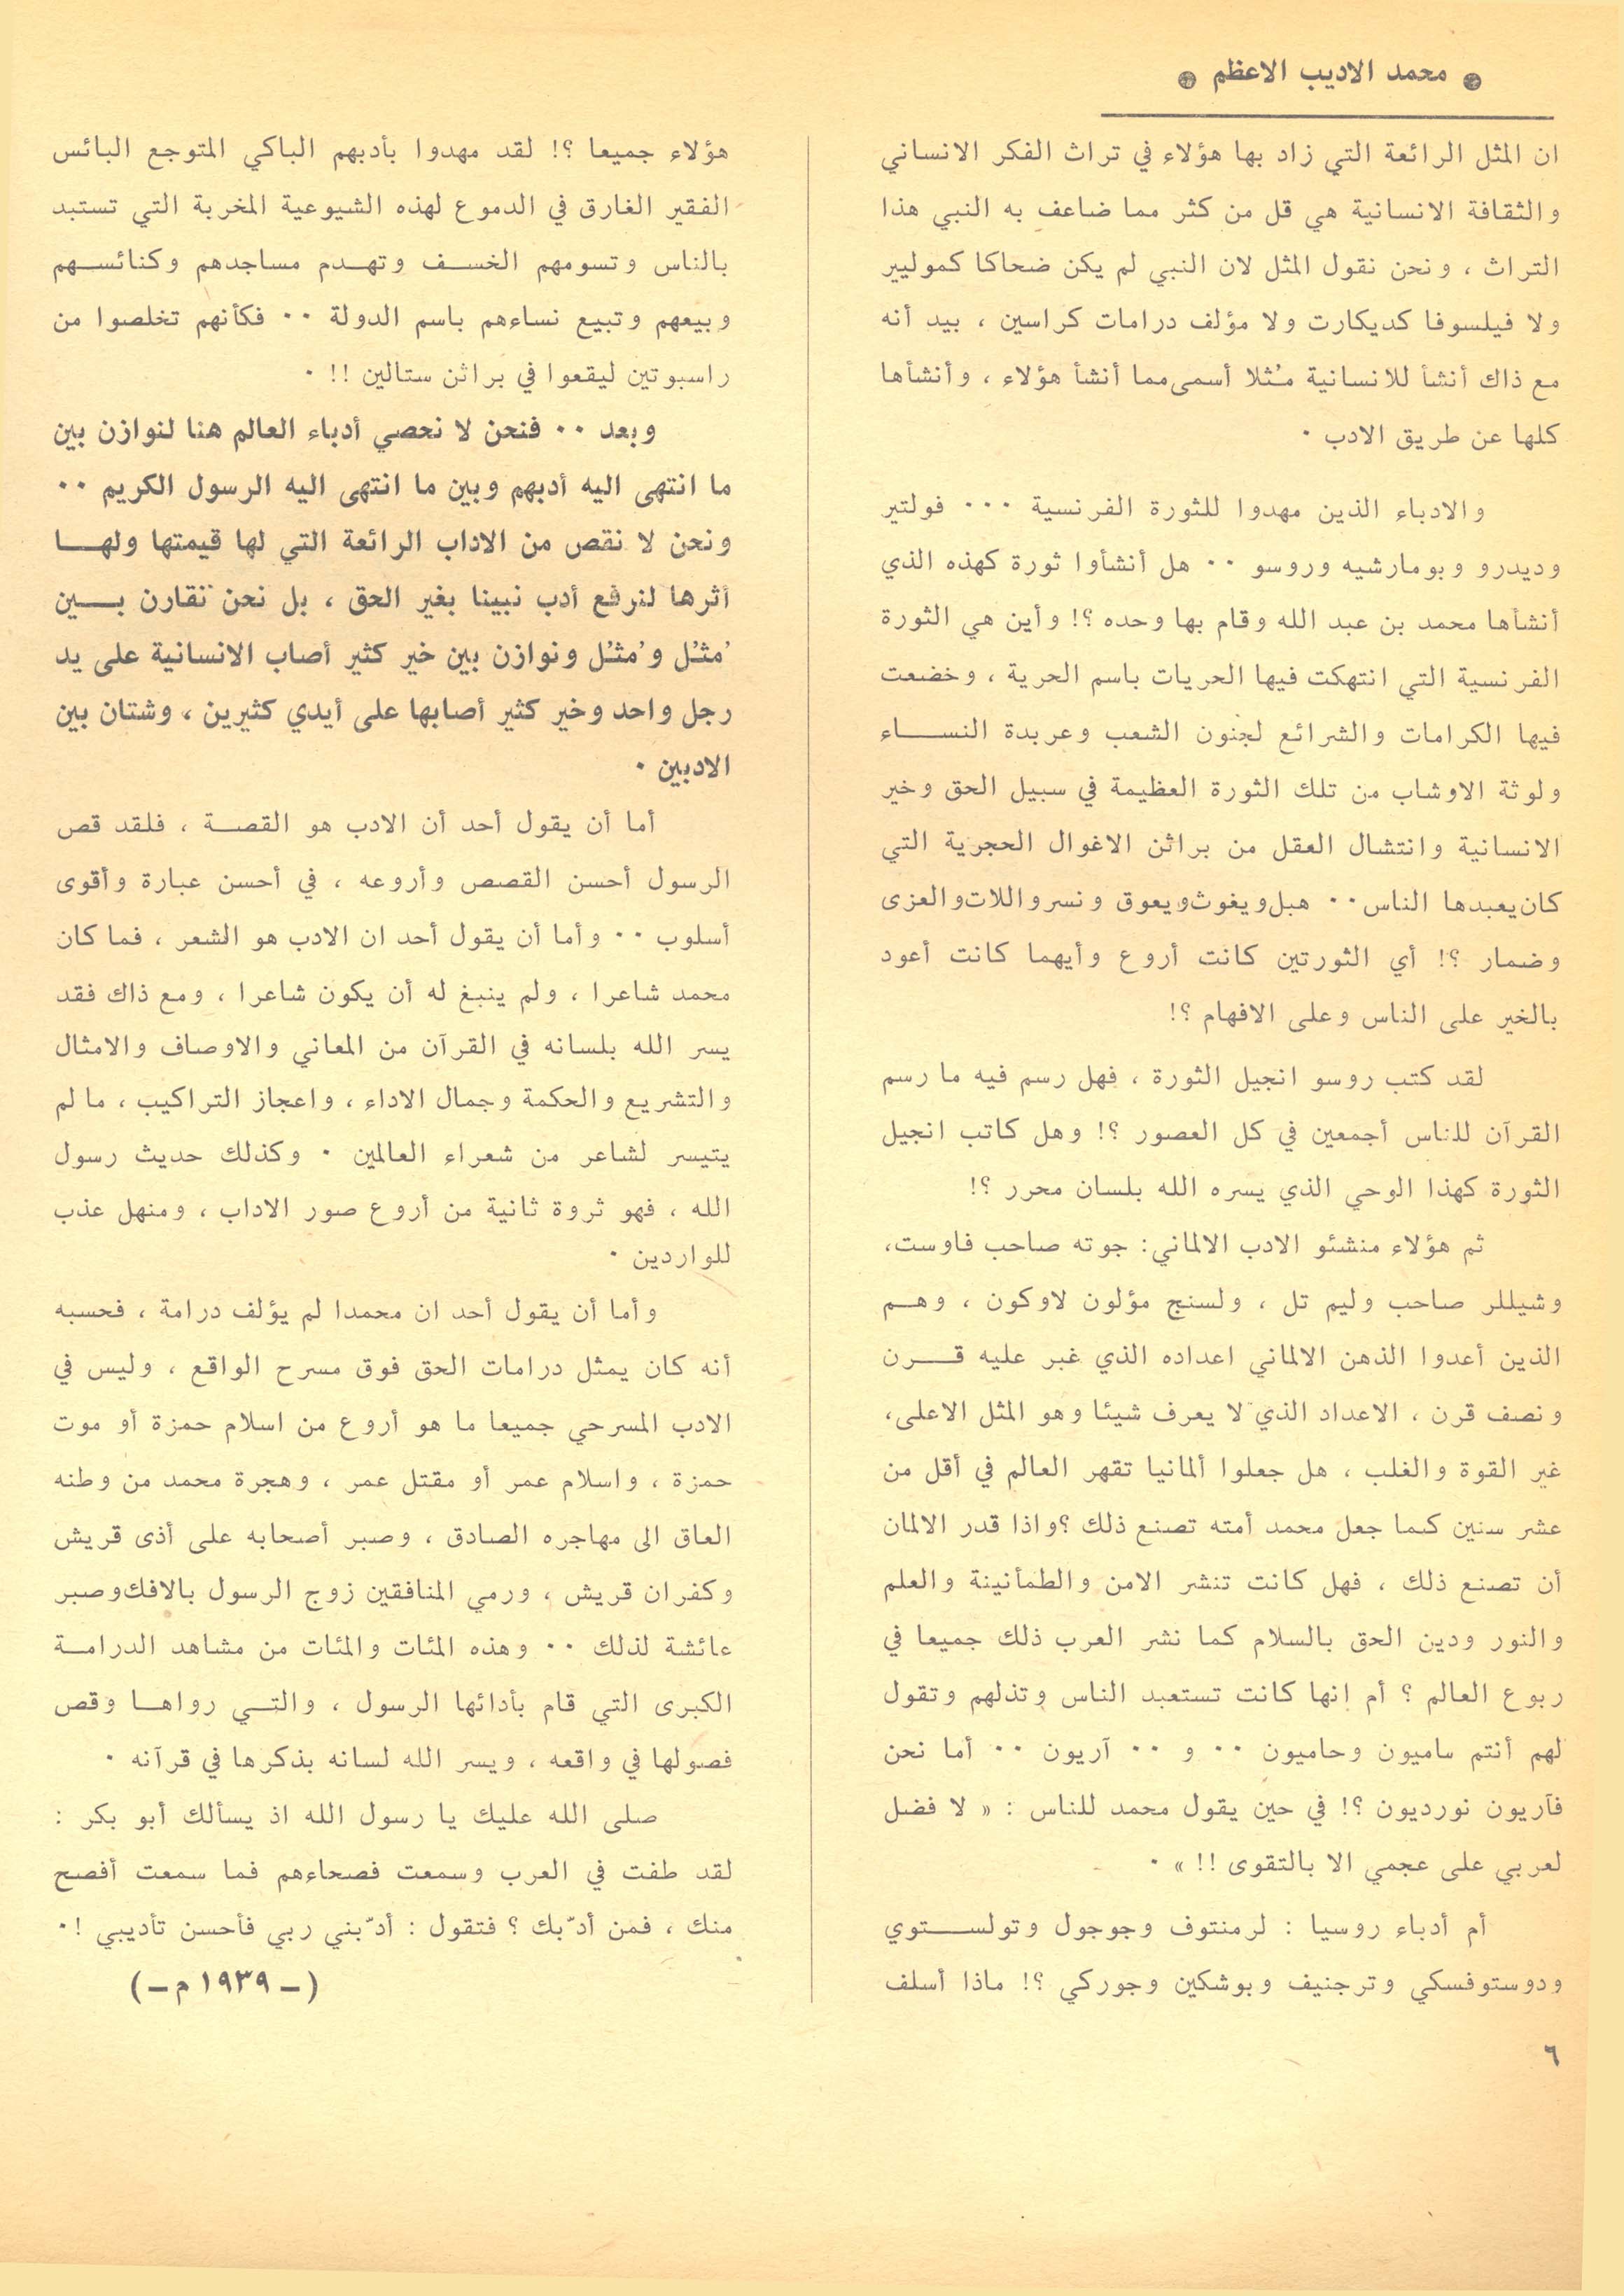 ● محمد الاديب الاعظم ●
ان المثل الرائعة التي زاد بها هؤلاء في تراث الفكر الانساني
والثقافة الانسانية هي قل من كثر مما ضاعف به النبي هذا
التراث ، ونحن نقول المثل لان النبي لم يكن ضحاكا كموليير
ولا فيلسوفا كديكارت ولا مؤلف درامات كراسين ، بيد أنه
مع ذاك أنشأ للانسانية مُثلا أسمى مما أنشأ هؤلاء ، وأنشأها
كلها عن طريق الادب ٠
والادباء الذين مهدوا للثورة الفرنسية ٠٠٠ فولتير
وديدرو وبومارشيه وروسو ٠٠ هل أنشأوا ثورة كهذه الذي
أنشأها محمد بن عبد الله وقام بها وحده ؟! وأين هي الثورة
الفرنسية التي انتهكت فيها الحريات باسم الحرية ، وخضعت
فيها الكرامات والشرائع لجنون الشعب وعربدة النســـاء
ولوثة الاوشاب من تلك الثورة العظيمة في سبيل الحق وخير
الانسانية وانتشال العقل من براثن الاغوال الحجرية التي
كان يعبدها الناس ٠٠ هبل ويغوث ويعوق ونسر واللات والعزى
وضمار ؟! أي الثورتين كانت أروع وأيهما كانت أعود
بالخير على الناس وعلى الافهام ؟!
لقد كتب روسو انجيل الثورة ، فهل رسم فيه ما رسم
القرآن للناس أجمعين في كل العصور ؟! وهل كاتب انجيل
الثورة كهذا الوحي الذي يسره الله بلسان محرر ؟!
ثم هؤلاء منشئو الادب الالماني : جوته صاحب فاوست،
وشيللر صاحب وليم تل ، ولسنج مؤلون لاوكون ، وهــم
الذين أعدوا الذهن الالماني اعداده الذي غبر عليه قـــرن
ونصف قرن ، الاعداد الذي لا يعرف شيئا وهو المثل الاعلى،
غير القوة والغلب ، هل جعلوا ألمانيا تقهر العالم في أقل من
عشر سنين كما جعل محمد أمته تصنع ذلك ؟ واذا قدر الالمان
أن تصنع ذلك ، فهل كانت تنشر الامن والطمأنينة والعلم
والنور ودين الحق بالسلام كما نشر العرب ذلك جميعا في
ربوع العالم ؟ أم انها كانت تستعبد الناس وتذلهم وتقول
لهم أنتم ساميون وحاميون ٠٠ و ٠٠ آريون ٠٠ أما نحن
فآريون نورديون ؟! في حين يقول محمد للناس : « لا فضل
لعربي على عجمي الا بالتقوى !! » ٠
أم أدباء روسيا : لرمنتوف وجوجول وتولســـتوي
ودوستوفسكي وترجنيف وبوشكين وجوركي ؟! ماذا أسلف
هؤلاء جميعا ؟! لقد مهدوا بأدبهم الباكي المتوجع البائس
الفقير الغارق في الدموع لهذه الشيوعية المخربة التي تستبد
بالناس وتسومهم الخســف وتهــدم مساجدهم وكنائســهم
وبيعهم وتبيع نساءهم باسم الدولة ٠٠ فكأنهم تخلصوا من
راسبوتين ليقعوا في براثن ستالين !! ٠
وبعد ٠٠ فنحن لا نحصي أدباء العالم هنا لنوازن بين
ما انتهى اليه أدبهم وبين ما انتهى اليه الرسول الكريم ٠٠
ونحن لا نقص من الاداب الرائعة التي لها قيمتها ولهــا
أثرها لنرفع أدب نبينا بغير الحق ، بل نحن نقارن بـــين
مُثُل ومُثُل ونوازن بين خير كثير أصاب الانسانية على يد
رجل واحد وخير كثير أصابها على أيدي كثيرين ، وشتان بين
الادبين ٠
أما أن يقول أحد أن الادب هو القصــة ، فلقد قص
الرسول أحسن القصص وأروعه ، في أحسن عبارة وأقوى
أسلوب ٠٠ وأما أن يقول أحد ان الادب هو الشعر ، فما كان
محمد شاعرا ، ولم ينبغ له أن يكون شاعرا ، ومع ذاك فقد
يسر الله بلسانه في القرآن من المعاني والاوصاف والامثال
والتشريع والحكمة وجمال الاداء ، واعجاز التراكيب ، ما لم
يتيسر لشاعر من شعراء العالمين ٠ وكذلك حديث رسول
الله ، فهو ثروة ثانية من أروع صور الاداب ، ومنهل عذب
للواردين ٠
وأما أن يقول أحد ان محمدا لم يؤلف درامة ، فحسبه
أنه كان يمثل درامات الحق فوق مسرح الواقع ، وليس في
الادب المسرحي جميعا ما هو أروع من اسلام حمزة أو موت
حمزة ، واسلام عمر أو مقتل عمر ، وهجرة محمد من وطنه
العاق الى مهاجره الصادق ، وصبر أصحابه على أذى قريش
وكفران قريش ، ورمي المنافقين زوج الرسول بالافك وصبر
عائشة لذلك ٠٠ وهذه المئات والمئات من مشاهد الدرامــة
الكبرى التي قام بأدائها الرسول ، والتــي رواهــا وقص
فصولها في واقعه ، ويسر الله لسانه بذكرها في قرآنه ٠
صلى الله عليك يا رسول الله اذ يسألك أبو بكر :
لقد طفت في العرب وسمعت فصحاءهم فما سمعت أفصح
منك ، فمن أدّبك ؟ فتقول : أدّبني ربي فأحسن تأديبي !٠
(ــ ١٩٣٩ م ــ)
٦